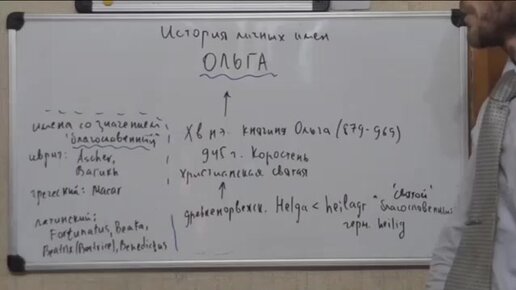 История личных имен
ОЛЬГА
имена со значением
"благословенный"
иврит: Ascher,
греческий: Macar
латинский:
Fortunatus, Beata,
Beatrix (Beatrice), Benedictus
X в н.э. княгиня Ольга (879-969)
945 г. Коростень
христианская святая
древненорвежск. Helga < heilagr "святой"
"благословенный"
герм. heilig